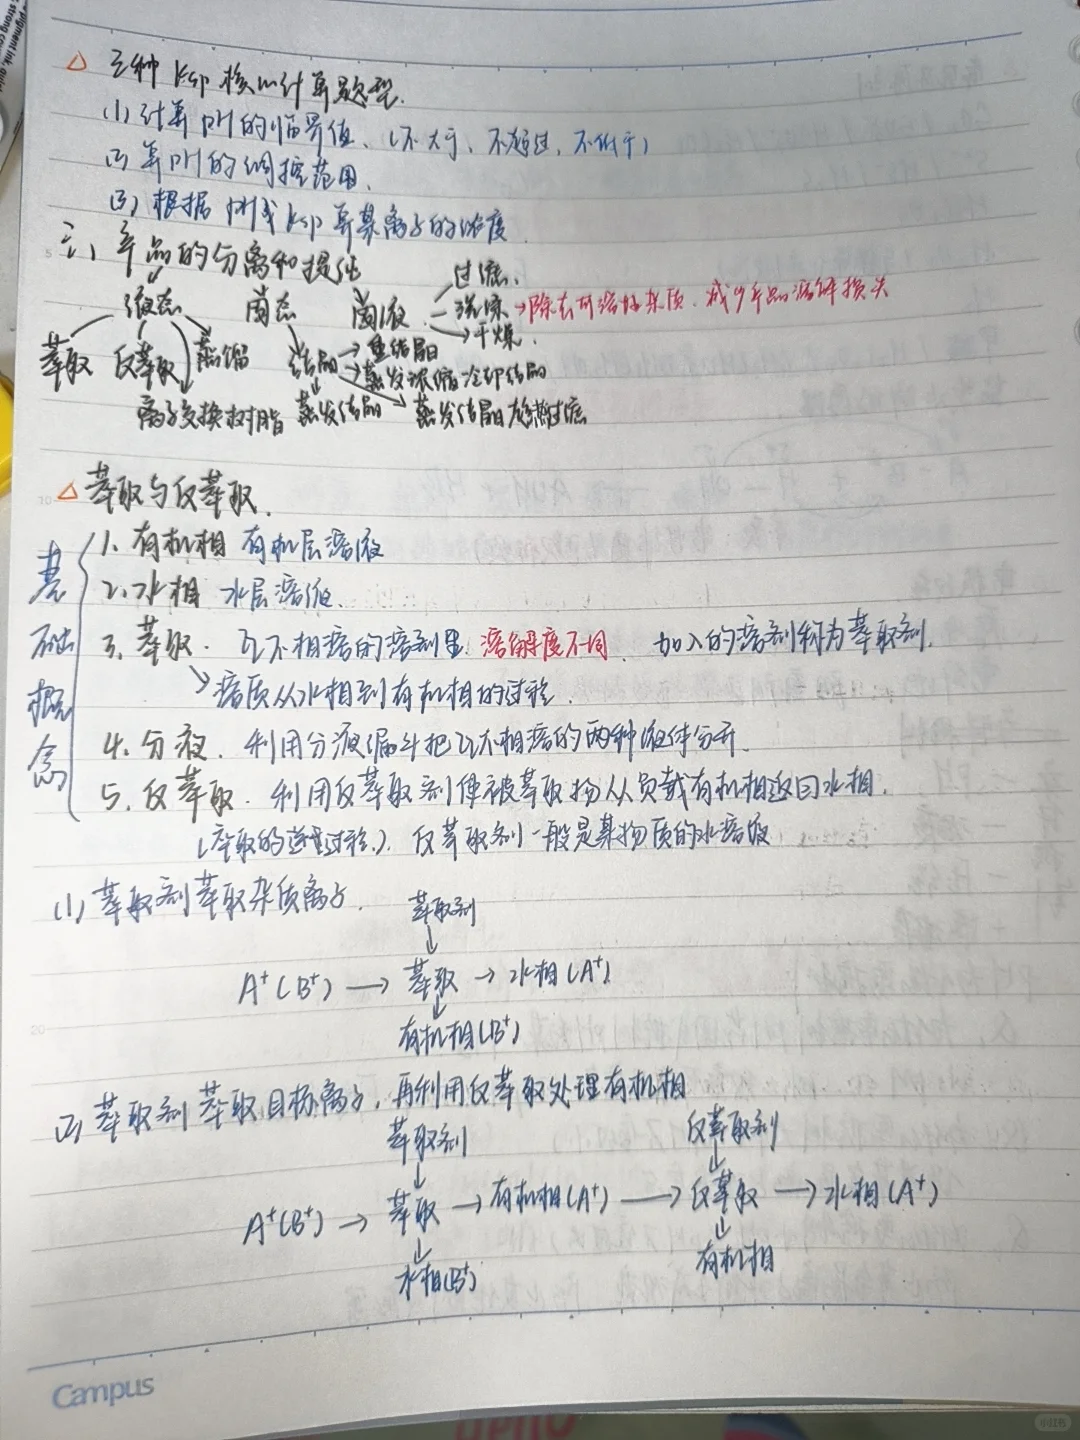 △ 三种 Ksp 核心计算题型.
(1) 计算 pH 的临界值、(不大于、不超过、不低于)
(2) 算 pH 的调控范围.
(3) 根据 pH或 Ksp 算某离子的浓度.
三、产品的分离和提纯
液态 固态 固液
过滤.
洗涤→除去可溶性杂质.减少产品溶解损失
干燥.
萃取 反萃取 蒸馏 结晶→重结晶
蒸发浓缩冷却结晶
离子交换树脂 蒸发结晶 蒸发结晶趁热过滤
△ 萃取与反萃取.
基础概念
1. 有机相 有机层溶液
2. 水相 水层溶液.
3. 萃取. 互不相溶的溶剂里.溶解度不同. 加入的溶剂称为萃取剂.
溶质从水相到有机相的过程.
4. 分液. 利用分液漏斗把互不相溶的两种液体分开.
5. 反萃取. 利用反萃取剂使被萃取物从负载有机相返回水相.
(萃取的逆过程.) 反萃取剂一般是某物质的水溶液
(1) 萃取剂萃取杂质离子.
萃取剂
↓
A⁺(B⁺) → 萃取 → 水相(A⁺)
↓
有机相(B⁺)
(2) 萃取剂萃取目标离子,再利用反萃取处理有机相
萃取剂 反萃取剂
↓ ↓
A⁺(B⁺) → 萃取 → 有机相(A⁺) → 反萃取 → 水相(A⁺)
↓ ↓
水相(B⁺) 有机相
Campus
小红书